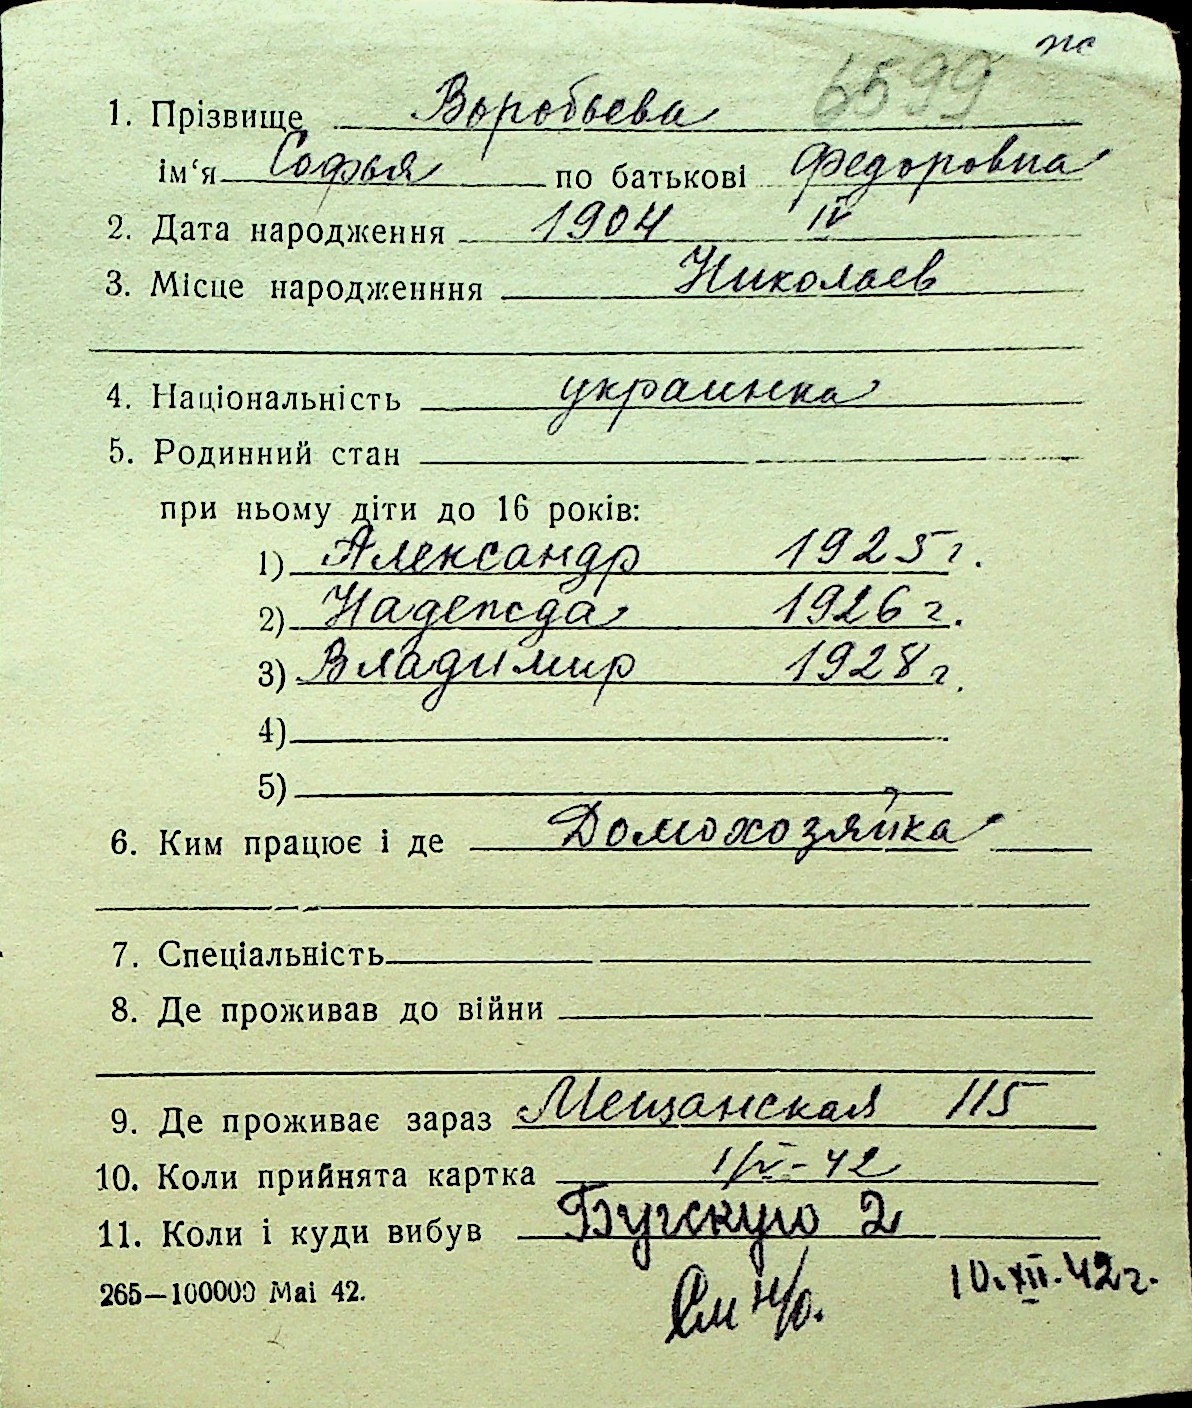 пс
6599
1. Прізвище Воробьева
ім‘я Софья по батькові Федоровна
2. Дата народження 1904 IV
3. Місце народженння Николаев
4. Національність украинка
5. Родинний стан
при ньому діти до 16 років:
1) Александр 1925 г.
2) Надежда 1926 г.
3) Владимир 1928 г.
4)
5)
6. Ким працює і де Домохозяйка
7. Спеціальність
8. Де проживав до війни
9. Де проживає зараз Мещанская 115
10. Коли прийнята картка 1/V-42
11. Коли і куди вибув Бугскую 2
265—100000 Mai 42. См н/о. 10.XII.42 г.